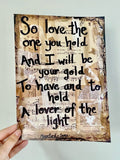 So love the
one you hold
And I will be
your gold
To have and to
hold
A lover of the
light